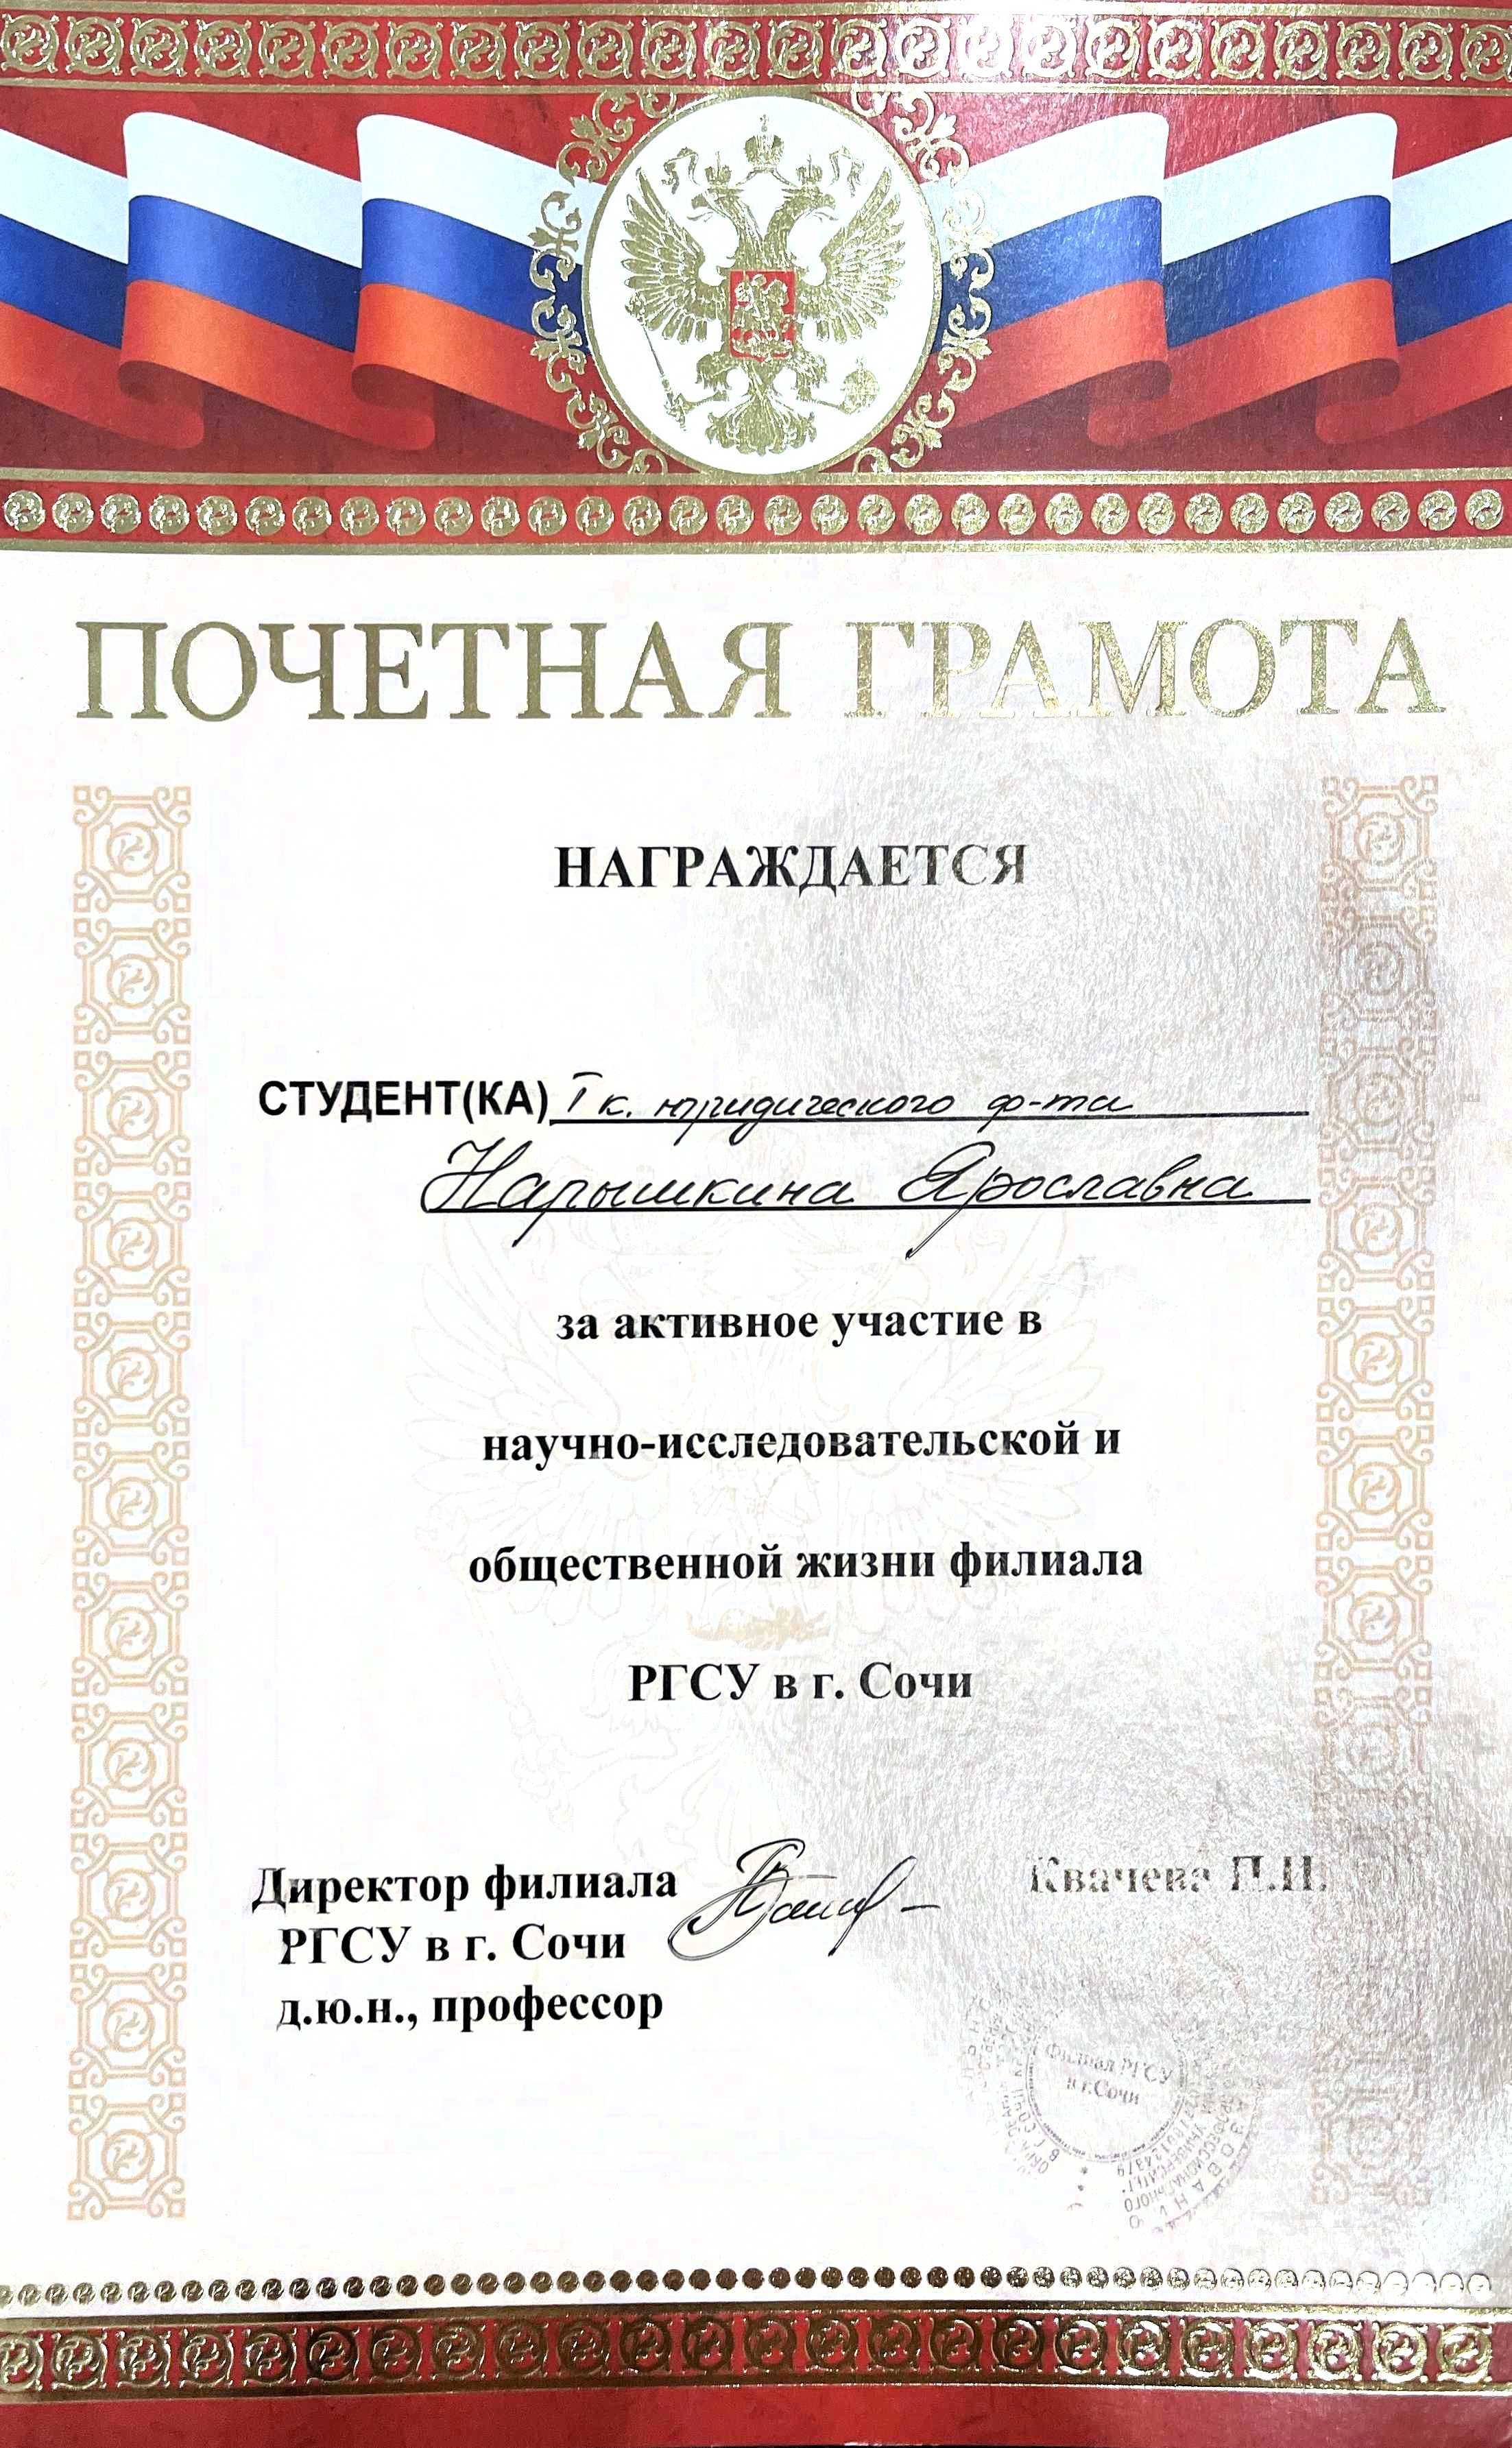 ПОЧЕТНАЯ ГРАМОТА
НАГРАЖДАЕТСЯ
СТУДЕНТ(КА) I к. юридического ф-та
Нарышкина Ярославна
за активное участие в
научно-исследовательской и
общественной жизни филиала
РГСУ в г. Сочи
Директор филиала
Квачева П.И.
РГСУ в г. Сочи
д.ю.н., профессор
Филиал РГСУ
в г.Сочи